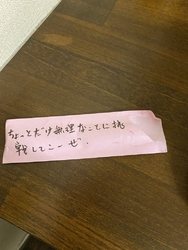 ちょっとだけ無理なことに挑
戦してこーぜ.